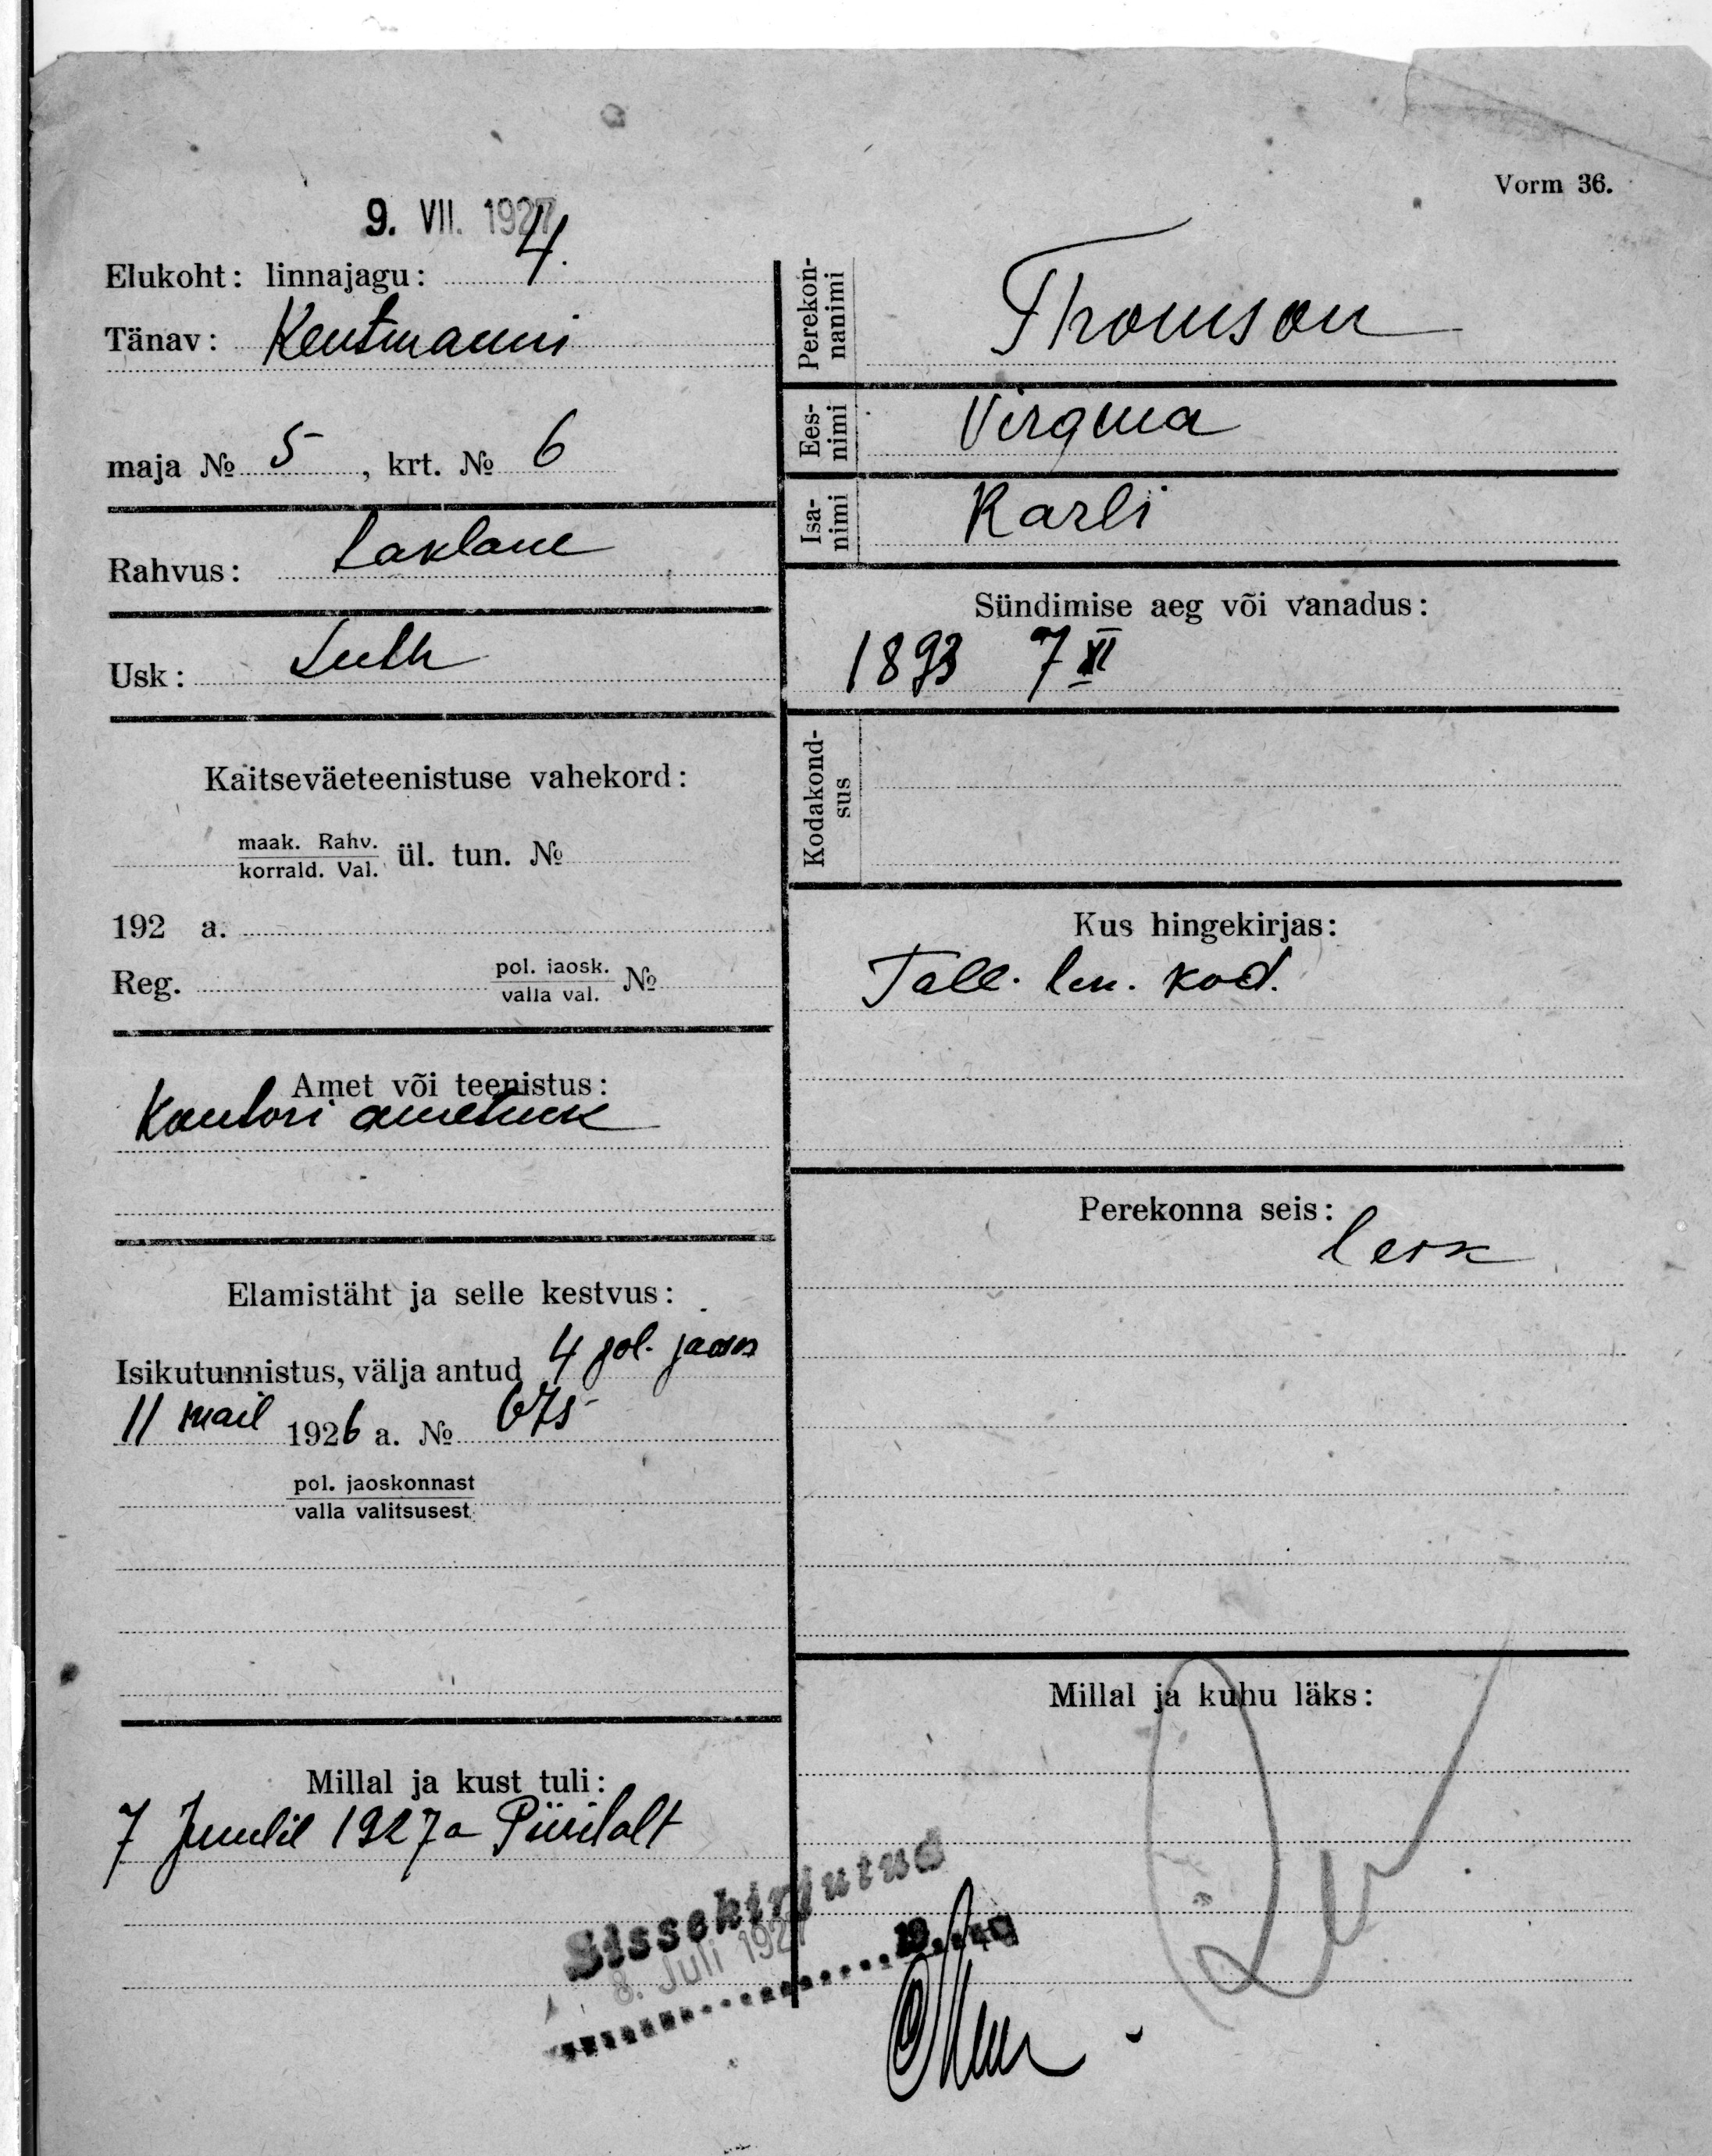 Vorm 36.
9. VII. 1927
Elukoht: linnajagu: 4.
Tänav: Kentmanni
maja № 5, krt. № 6
Rahvus: Sakslane
Usk: Luth
Kaitseväeteenistuse vahekord:
maak. Rahv.
korrald. Val. ül. tun. №
192 a.
Reg. pol. jaosk.
valla val. №
Amet või teenistus:
Kontori ametnik
Elamistäht ja selle kestvus:
Isikutunnistus, välja antud 4 pol. jaosk
11 mail 1926 a. № 675
pol. jaoskonnast
valla valitsusest
Millal ja kust tuli:
7 Juulil 1927 a
Perekon-
nanimi
Thomson
Ees-
nimi
Virginia
Isa-
nimi
Karli
Sündimise aeg või vanadus:
1893 7 XI
Kodakond-
sus
Kus hingekirjas:
Tall. lin. kod.
Perekonna seis:
lesk
Millal ja kuhu läks:
Sissekirjutud
8. Juli 1927